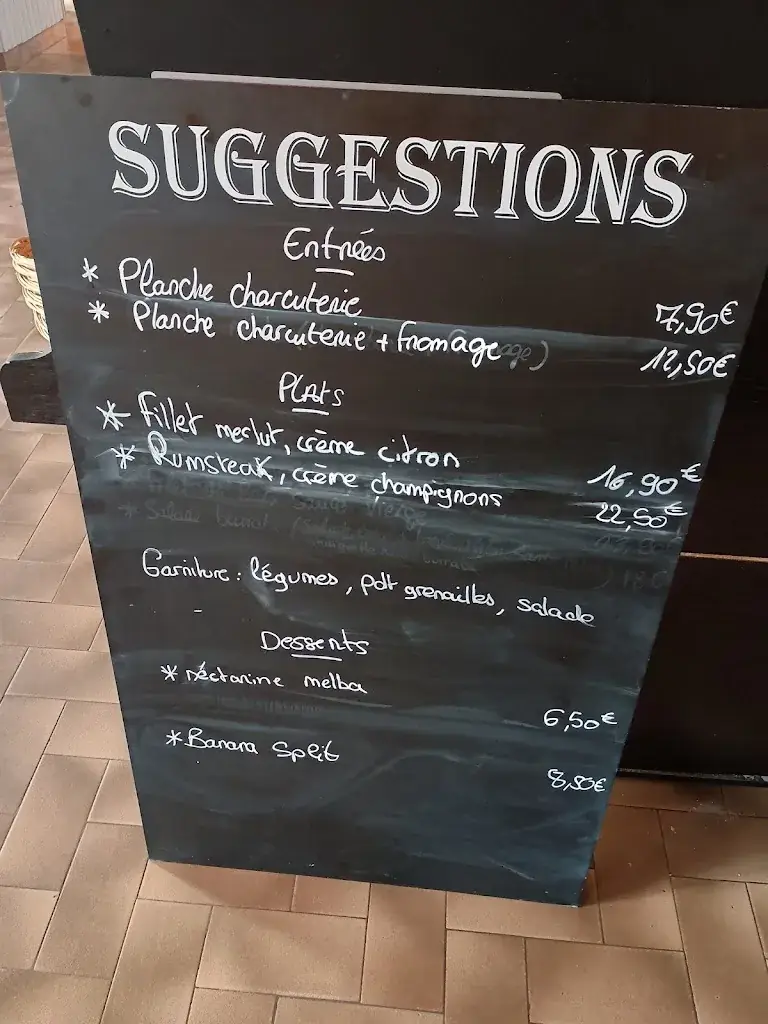 SUGGESTIONS
Entrées
* Planche charcuterie 7,90€
* Planche charcuterie + fromage 12,50€
Plats
* Fillet merlut, crème citron 16,90€
* Rumsteak, crème champignons 22,50€
Garniture : légumes, pdt grenailles, salade
Desserts
* nectarine melba 6,50€
* Banana Split 8,50€